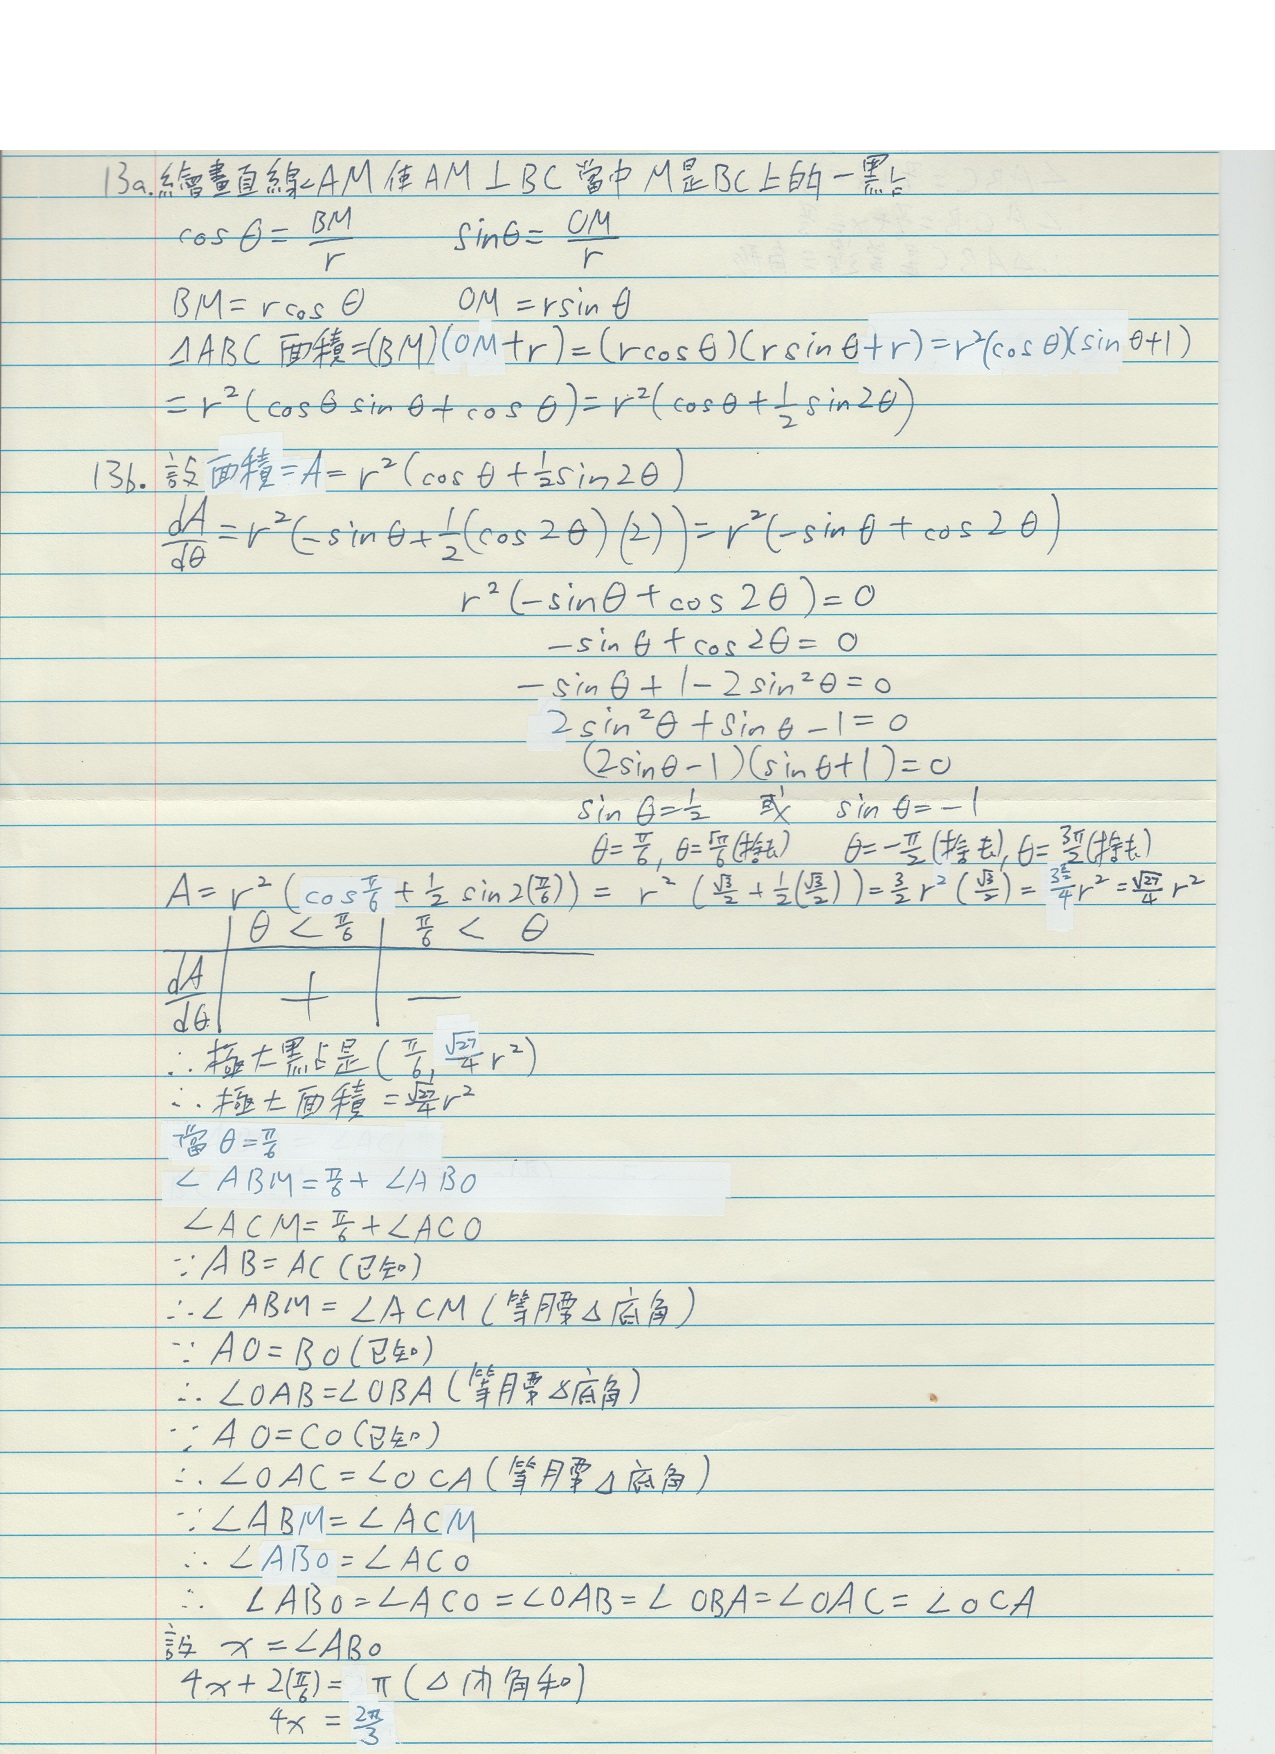 13a. 繪畫直線AM使AM⊥BC當中M是BC上的一點
cosθ = BM/r  sinθ = OM/r
BM = rcosθ  OM = rsinθ
ΔABC面積=(BM)(OM+r)=(rcosθ)(rsinθ+r)=r²(cosθ)(sinθ+1)
= r²(cosθsinθ+cosθ)=r²(cosθ+1/2sin2θ)
13b. 設面積=A=r²(cosθ+1/2sin2θ)
dA/dθ=r²(-sinθ+1/2(cos2θ)(2))=r²(-sinθ+cos2θ)
r²(-sinθ+cos2θ)=0
-sinθ+cos2θ=0
-sinθ+1-2sin²θ=0
2sin²θ+sinθ-1=0
(2sinθ-1)(sinθ+1)=0
sinθ=1/2 或 sinθ=-1
θ=π/6, θ=5π/6(捨去) θ=-π/2(捨去), θ=3π/2(捨去)
A=r²(cosπ/6+1/2sin2(π/6))=r²(√3/2+1/2(√3/2))=3/2r²(√3/2)=3^(3/2)/4r²=√27/4r²
θ<π/6 π/6<θ
dA/dθ + −
∴極大點是(π/6, √27/4r²)
∴極大面積=√27/4r²
當θ=π/6
∠ABM=π/6+∠ABO
∠ACM=π/6+∠ACO
∵AB=AC(已知)
∴∠ABM=∠ACM(等腰Δ底角)
∵AO=BO(已知)
∴∠OAB=∠OBA(等腰Δ底角)
∵AO=CO(已知)
∴∠OAC=∠OCA(等腰Δ底角)
∵∠ABM=∠ACM
∴∠ABO=∠ACO
∴∠ABO=∠ACO=∠OAB=∠OBA=∠OAC=∠OCA
設x=∠ABO
4x+2(π/6)=π(Δ內角和)
4x=2π/3